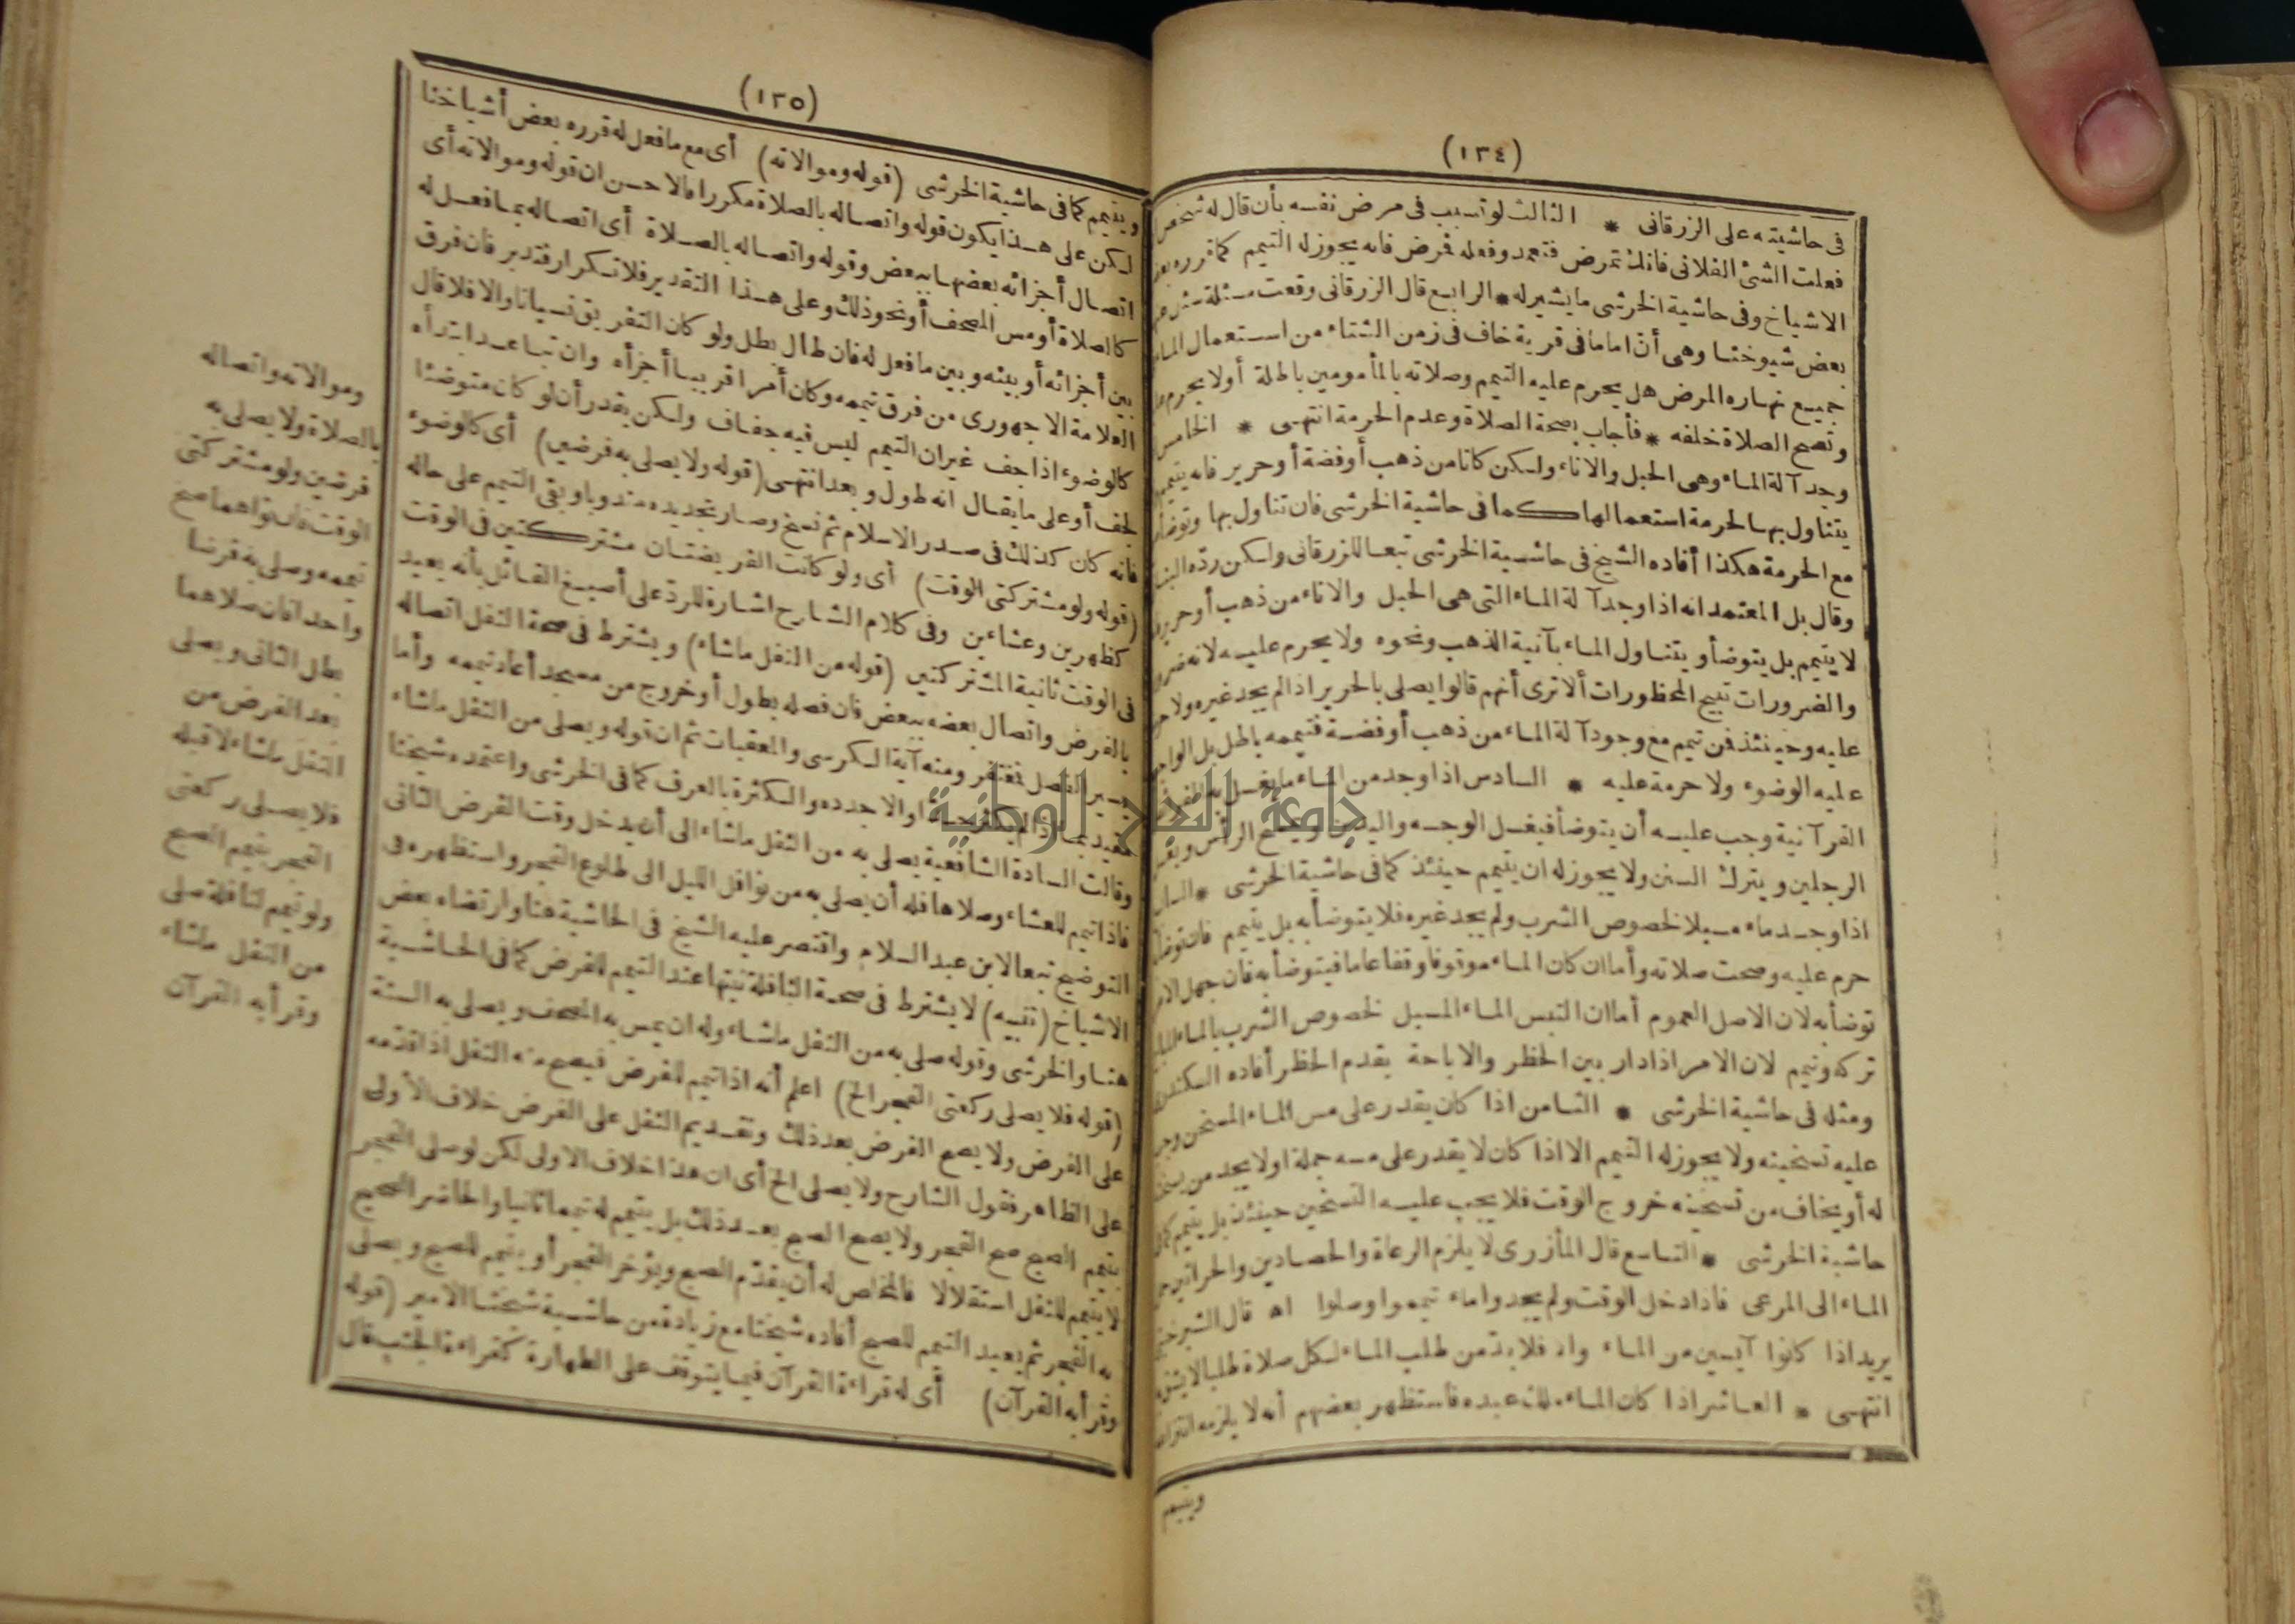 (١٣٤)
فى حاشيته على الزرقانى * الثالث لو تسبب فى مرض نفسه بأن قال له شخص
فعلت الشئ الفلانى فانك تمرض فتعمد وفعله فمرض فانه يجوز له التيمم كما قرره بعض
الاشياخ وفى حاشية الخرشى ما يشير له * الرابع قال الزرقانى وقعت مسئلة سئل عنها
بعض شيوخنا وهى أن اماما فى قرية خاف فى زمن الشتاء من استعمال الماء
جميع نهاره المرض هل يحرم عليه التيمم وصلاته بالمأمومين باطلة أولا يحرم
وتصح الصلاة خلفه * فأجاب بصحة الصلاة وعدم الحرمة انتهى * الخامس
وجد آلة الماء وهى الحبل والاناء ولكن كانا من ذهب أو فضة أو حرير فانه يتيمم
يتناول بهما لحرمة استعمالها كما فى حاشية الخرشى فان تناول بها وتوضأ
مع الحرمة هكذا أفاده الشيخ فى حاشية الخرشى تبعا للزرقانى ولكن رده
وقال بل المعتمد انه اذا وجد آلة الماء التى هى الحبل والاناء من ذهب أو حرير
لا يتيمم بل يتوضأ ويتناول الماء بآنية الذهب ونحوه ولا يحرم عليه لانه
والضرورات تبيح المحظورات ألا ترى أنهم قالوا يصلى بالحرير اذا لم يجد غيره ولا
عليه وحينئذ فمن تيمم مع وجود آلة الماء من ذهب أو فضة فتيممه باطل بل
عليه الوضوء ولا حرمة عليه * السادس اذا وجد من الماء ما يغسل به
القرآنية وجب عليه أن يتوضأ فيغسل الوجه واليدين ويمسح الرأس
الرجلين ويترك السنن ولا يجوز له ان يتيمم حينئذ كما فى حاشية الخرشى *
اذا وجد ماء مسبلا لخصوص الشرب ولم يجد غيره فلا يتوضأ به بل يتيمم فان توضأ
حرم عليه وصحت صلاته وأما ان كان الماء موقوفا وقفا عاما فيتوضأ به فان جهل
توضأ به لان الاصل العموم أما ان التبس الماء المسبل لخصوص الشرب بالماء
تركه وتيمم لان الامر اذا دار بين الحظر والاباحة يقدم الحظر أفاده
ومثله فى حاشية الخرشى * الثامن اذا كان يقدر على مس الماء المسخن
عليه تسخينه ولا يجوز له التيمم الا اذا كان لا يقدر على مسه جملة أولا يجد من
له أو يخاف من تسخينه خروج الوقت فلا يجب عليه التسخين حينئذ بل يتيمم
حاشية الخرشى * التاسع قال المأزرى لا يلزم الرعاة والحصادين والحراثين
الماء الى المرعى فاذا دخل الوقت ولم يجدوا ماء تيمموا وصلوا اه قال
يريد اذا كانوا آيسين من الماء والا فلا بد من طلب الماء لكل صلاة طلبا
انتهى * العاشر اذا كان الماء ملك عبده فاستظهر بعضهم أنه لا يلزمه
ويتيمم
(١٣٥)
ويتيمم كما فى حاشية الخرشى (قوله وموالاته) أى مع ما فعل له قرره بعض أشياخنا
لكن على هذا يكون قوله واتصاله بالصلاة مكررا فالاحسن ان قوله وموالاته أى
اتصال أجزائه بعضها ببعض وقوله واتصاله بالصلاة أى اتصاله بما فعل له
كالصلاة أو مس المصحف أو نحو ذلك وعلى هذا التقدير فلا تكرار فتدبر فان فرق
بين أجزائه أو بينه وبين ما فعل له فان طال بطل ولو كان التفريق نسيانا والا فلا قال
العلامة الاجهورى من فرق تيممه وكان أمرا قريبا أجزأه وان تباعد ابتدأه
كالوضوء اذا جف غير ان التيمم ليس فيه جفاف ولكن يقدر أن لو كان متوضئا
لجف أو على ما يقال انه طول وبعد انتهى (قوله ولا يصلى به فرضين) أى كالوضوء
فانه كان كذلك فى صدر الاسلام ثم نسخ وصار تجديده مندوبا وبقى التيمم على حاله
(قوله ولو مشتركتى الوقت) أى ولو كانت الفريضتان مشتركتين فى الوقت
كظهرين وعشاءين وفى كلام الشارح اشارة للرد على أصبغ القائل بأنه يعيد
فى الوقت ثانية المشتركتين (قوله من النفل ما شاء) ويشترط فى صحة النفل اتصاله
بالفرض واتصال بعضه ببعض فان فصله بطول أو خروج من مسجد أعاد تيممه وأما
يسير الفصل فمغتفر ومنه آية الكرسى والمعقبات ثم ان قوله ويصلى من النفل ما شاء
مقيد بما اذا لم يكثر جدا والا جدده والكثرة بالعرف كما فى الخرشى واعتمده شيخنا
وقالت السادة الشافعية يصلى به من النفل ما شاء الى أن يدخل وقت الفرض الثانى
فاذا تيمم للعشاء وصلاها فله أن يصلى به من نوافل الليل الى طلوع الفجر واستظهره فى
التوضيح تبعا لابن عبد السلام واقتصر عليه الشيخ فى الحاشية هنا وارتضاه بعض
الاشياخ (تنبيه) لا يشترط فى صحة النافلة نيتها عند التيمم للفرض كما فى الحاشية
هنا والخرشى وقوله صلى به من النفل ما شاء وله ان يمس به المصحف ويصلى به السنة
(قوله فلا يصلى ركعتى الفجر الخ) اعلم أنه اذا تيمم للفرض فيصح منه النفل اذا قدمه
على الفرض ولا يصح الفرض بعد ذلك وتقديم النفل على الفرض خلاف الأولى
على الظاهر فقول الشارح ولا يصلى الخ أى ان هذا خلاف الاولى لكن لو صلى الفجر
بتيمم الصبح صح الفجر ولا يصح الصبح بعد ذلك بل يتيمم له تيمما ثانيا والحاضر الصحيح
لا يتيمم للنفل استقلالا فالمخلص له أن يقدم الصبح ويؤخر الفجر أو يتيمم للصبح ويصلى
به الفجر ثم يعيد التيمم للصبح أفاده شيخنا مع زيادة من حاشية شيخنا الامير (قوله
وقرأ به القرآن) أى له قراءة القرآن فيما يتوقف على الطهارة كقراءة الجنب قال
وموالاته واتصاله
بالصلاة ولا يصلى به
فرضين ولو مشتركتى
الوقت فان نواهما صح
تيممه وصلى به فرضا
واحدا فان صلاهما
بطل الثانى ويصلى
بعد الفرض من
النفل ما شاء لا قبله
فلا يصلى ركعتى
الفجر بتيمم الصبح
ولو تيمم لنافلة صلى
من النفل ما شاء
وقرأ به القرآن
جامعة النجاح الوطنية